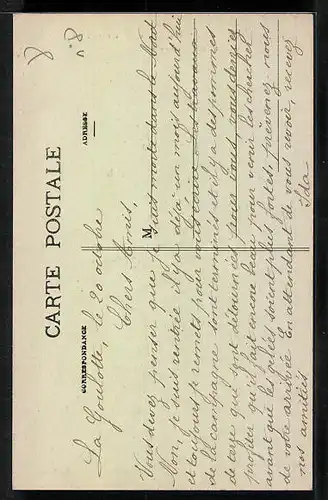 8
n°8
CARTE POSTALE
CORRESPONDANCE
ADRESSE
M
La Goulotte, le 20 octobre
Chers Amis,
Vous devez penser que je suis morte dans le
Non, je suis rentrée il y a déjà un mois aujourd'hui
et toujours remets pour vous écrire. Les travaux
de la campagne sont terminés et il y a des pommes
de terre que sont détournées pour vous, vous deviez
parler qu'il fait encore beau pour venir les chercher
avant que les gelées soient plus fortes. prévenez nous
de votre arrivée. En attendant de vous revoir, recevez
nos amitiés
Ida